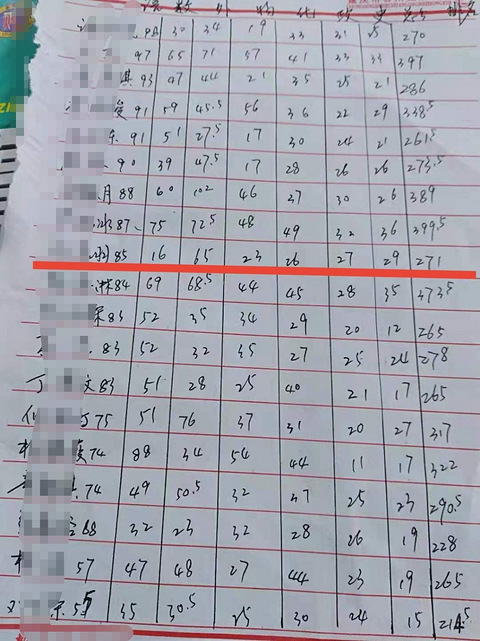 语 数 外 物 化 政 史 总分 排名
98 30 34 19 33 31 25 270
97 65 71 57 41 33 33 397
琪 93 47 44 21 35 25 21 286
俊 91 59 45.5 56 36 22 29 338.5
乐 91 51 27.5 17 30 24 21 261.5
90 39 47.5 17 28 26 26 273.5
月 88 60 102 46 37 30 26 389
87 75 72.5 48 49 32 36 399.5
85 16 65 23 26 27 29 271
琳 84 69 68.5 44 45 28 35 373.5
83 52 35 34 29 20 12 265
83 52 32 35 27 25 24 278
丁 文 83 51 28 25 40 21 17 265
75 51 76 37 31 20 27 317
74 88 34 54 44 11 17 322
74 49 50.5 32 37 25 23 290.5
68 32 23 32 28 26 19 228
57 47 48 27 44 23 19 265
55 35 30.5 25 30 24 15 214.5